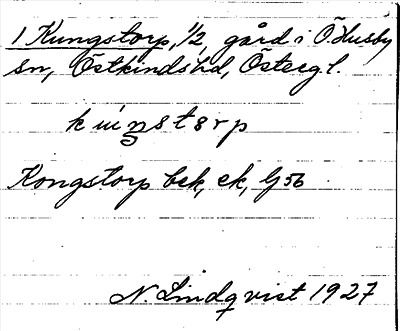 1 Kungstorp, 1/2, gård i Ö. Husby
sn, Östkinds hd, Östergl.
Kongstorp bck, ck, G 56
N. Lindqvist 1927